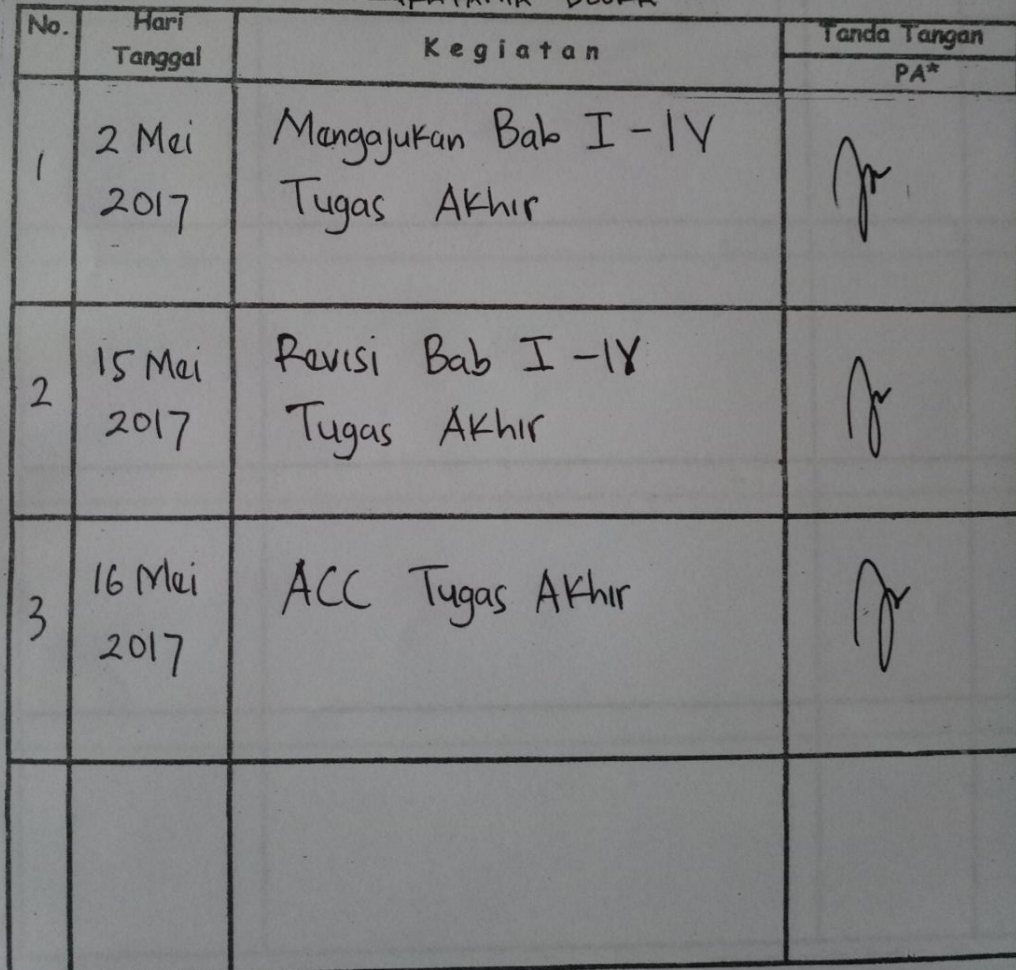 No.
Hari
Tanggal
Kegiatan
Tanda Tangan
PA*
1
2 Mei
2017
Mengajukan Bab I - IV
Tugas Akhir
2
15 Mei
2017
Revisi Bab I - IV
Tugas Akhir
3
16 Mei
2017
ACC Tugas Akhir